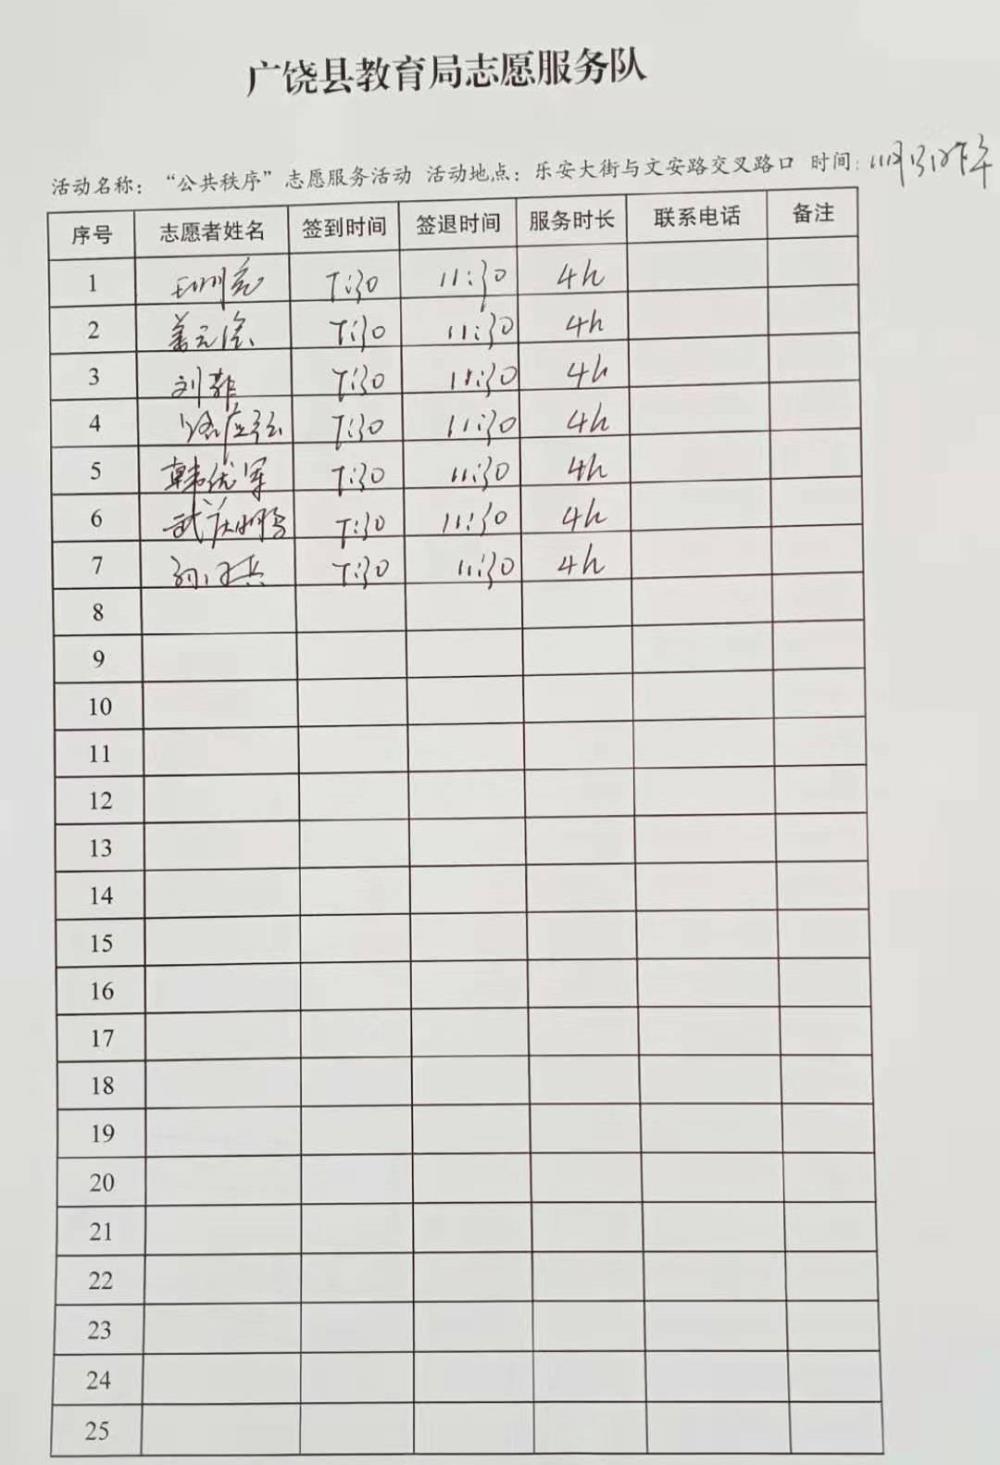 广饶县教育局志愿服务队
活动名称：“公共秩序”志愿服务活动 活动地点：乐安大街与文安路交叉路口 时间：11月13日下午
序号 志愿者姓名 签到时间 签退时间 服务时长 联系电话 备注
1 7:30 11:30 4h
2 7:30 11:30 4h
3 刘菲 7:30 11:30 4h
4 7:30 11:30 4h
5 韩优军 7:30 11:30 4h
6 7:30 11:30 4h
7 7:30 11:30 4h
8
9
10
11
12
13
14
15
16
17
18
19
20
21
22
23
24
25